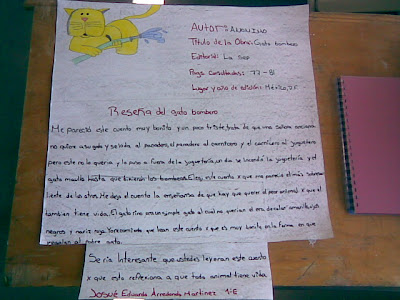 Autor: Anonimo
Título de la Obra: Gato bombero
Editorial: La sep
Pags Consultadas: 77-81
Lugar y año de edición: México, D.F
Reseña del gato bombero
Me pareció este cuento muy bonito y un poco triste, trata de que una señora anciana
no quiere a su gato y se lo da al panadero, el panadero al carnicero y el carnicero al juguetero
pero este no lo quería y lo puso a fuera de la juguetería, un día se incendió la juguetería y el
gato maulló hasta que vinieron los bomberos. Eligí este cuento x que me parecía el más sobresa-
liente de los otros. Me dejo el cuento la enseñanza de que hay que querer al pobre animal x que el
tambien tiene vida. El gato rino era un simple gato al cual no querian el era de color amarillo, ojos
negros y nariz roja. Yo recomiendo que lean este cuento x que es muy bonito en la forma en que
al pobre gato.
Sería Interesante que ustedes leyeran este cuento
x que esto reflexiona a que todo animal tiene vida.
Josué Eduardo Arredondo Martínez 1°E